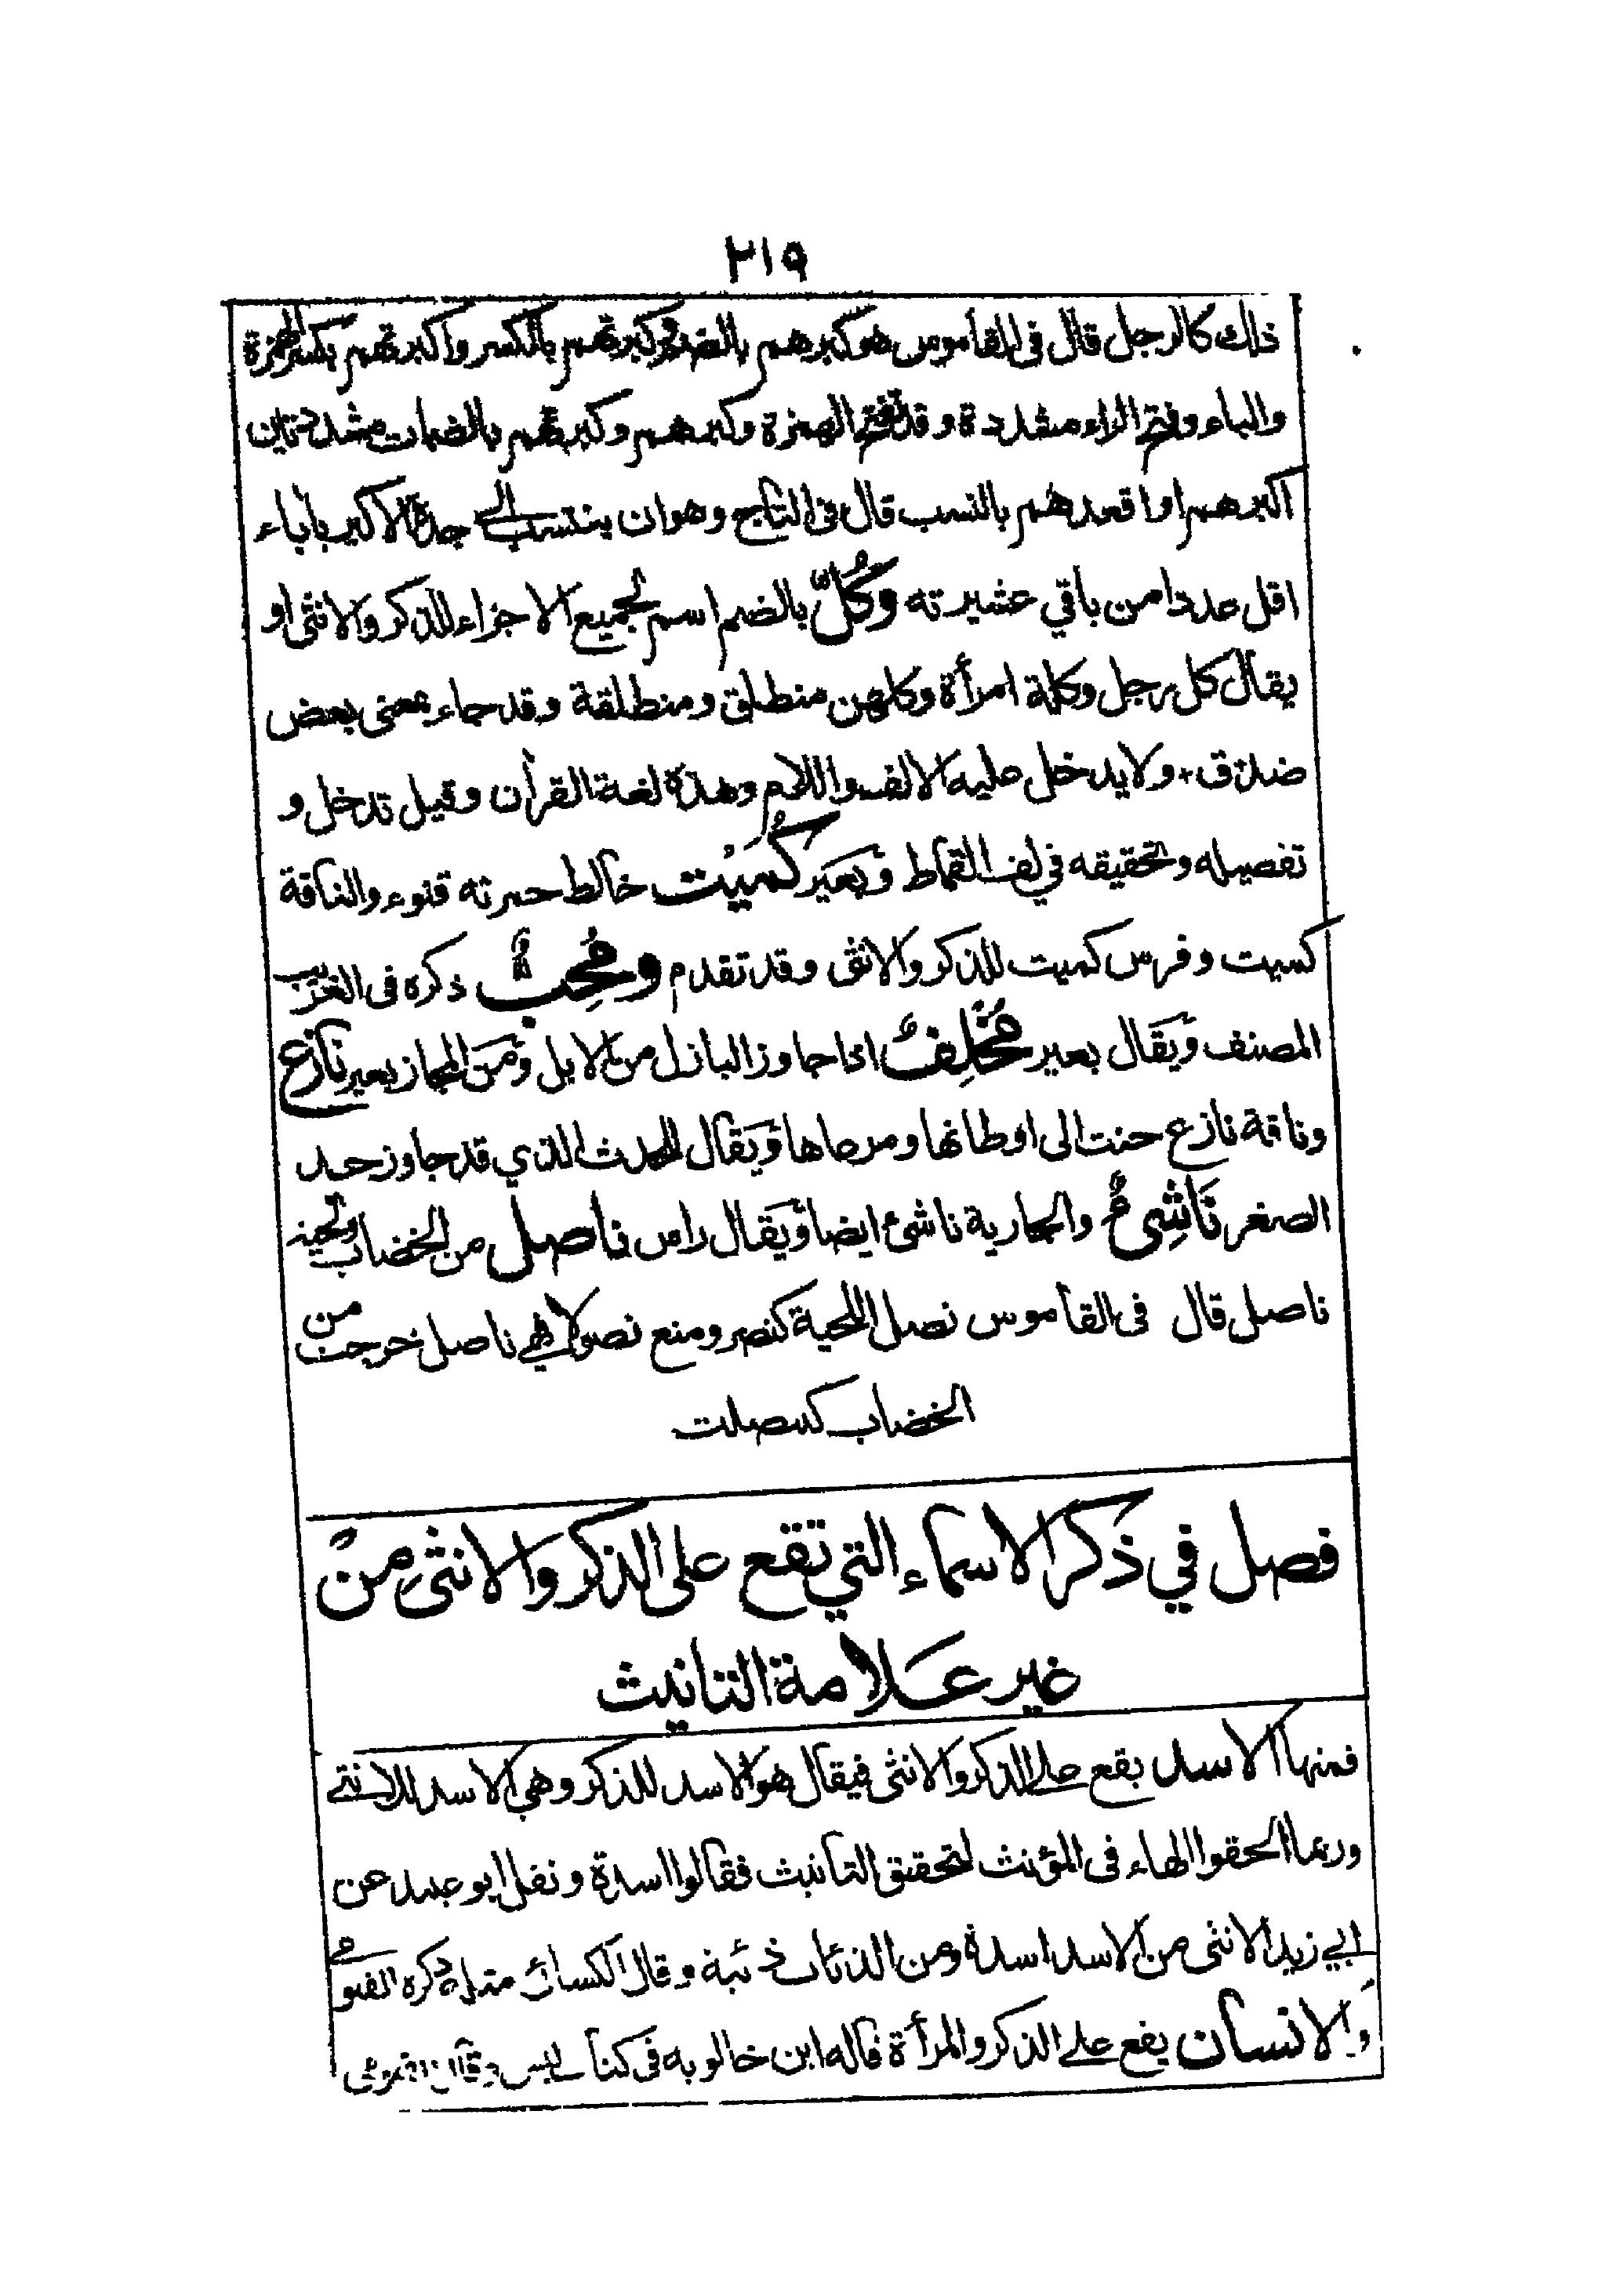 ٢١٩
ذلك كالرجل قال في القاموس هو كبرهم بالضم وكبرتهم بالكسر واكبرتهم بكسر الهمزة
والباء وفتح الراء مشددة وقد تفتح الهمزة وكبرهم وكبرتهم بالضمات مشددتين
اكبرهم او اقعدهم بالنسب قال في التاج وهو ان ينتسب الى جده الاكبر باباء
اقل عددا من باقي عشيرته وكُلٌّ بالضم اسم لجميع الاجزاء للذكر والانثى او
يقال كل رجل وكلة امرأة وكلهن منطلق ومنطلقة وقد جاء بمعنى بعض
ضد ق، ولا يدخل عليه الالف واللام وهذه لغة القرأن وقيل تدخل و
تفصيله وتحقيقه في لف القماط وبعير كُمَيْت خالط حمرته قنوء والناقة
كميت وفرس كميت للذكر والانثى وقد تقدم ومُحِبٌّ ذكره في الغريب
المصنف ويقال بعير مُخْلِفٌ اذا جاوز البازل من الابل ومن المجاز بعير نازع
وناقة نازع حنت الى اوطانها ومرعاها ويقال للحدث الذي قد جاوز حد
الصغر نَاشِئٌ والجارية ناشئ ايضا ويقال راس ناصل من الخضاب ولحية
ناصل قال في القاموس نصل اللحية كنصر ومنع نصولا فهي ناصل خرجت من
الخضاب كتنصلت
فصل في ذكر الاسماء التي تقع على الذكر والانثى من
غير علامة التانيث
فمنها الاسد يقع على الذكر والانثى فيقال هو الاسد للذكر وهي الاسد للانثى
وربما الحقوا الهاء في المؤنث لتحقيق التانيث فقالوا اسدة ونقل ابو عبيد عن
ابي زيد الانثى من الاسد اسدة ومن الذئاب ذئبة وقال الكسائي مثله ذكره الفيومي
والانسان يقع على الذكر والمرأة قاله ابن خالويه في كتاب ليس وقال الفيومي